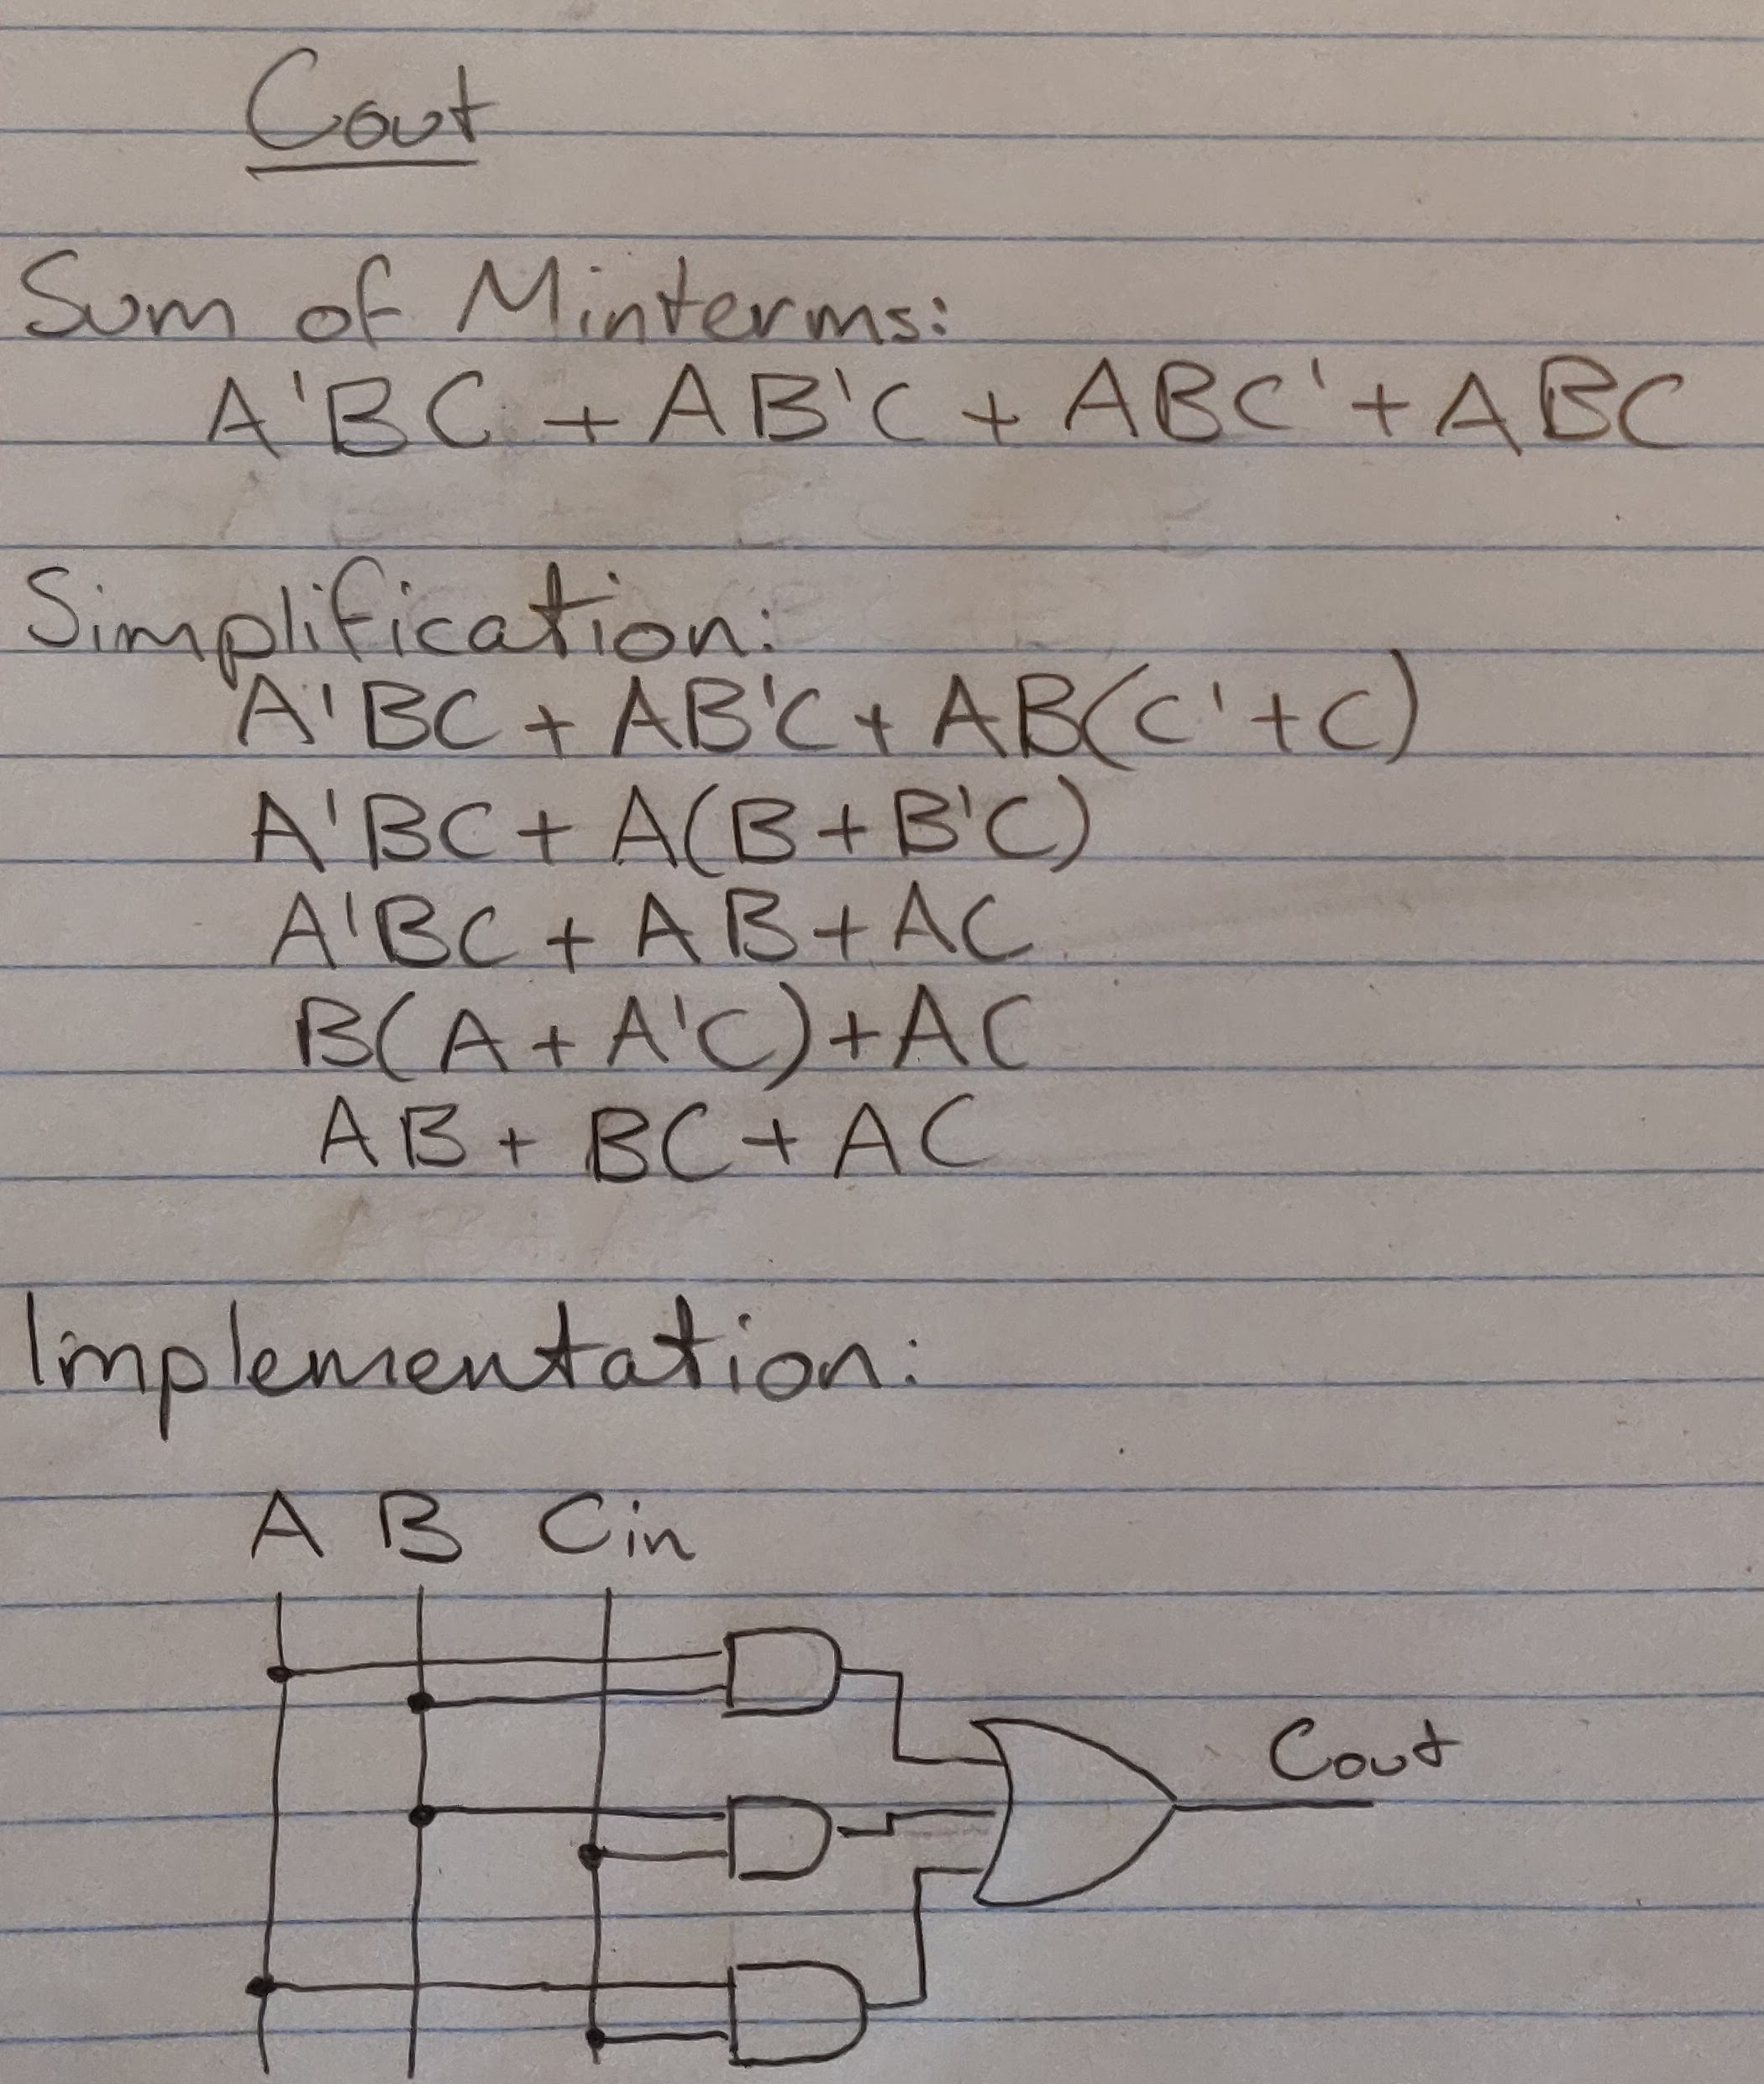 Cout
Sum of Minterms:
A'BC + AB'C + ABC' + ABC
Simplification:
A'BC + AB'C + AB(C' + C)
A'BC + A(B + B'C)
A'BC + AB + AC
B(A + A'C) + AC
AB + BC + AC
Implementation:
A B Cin
Cout